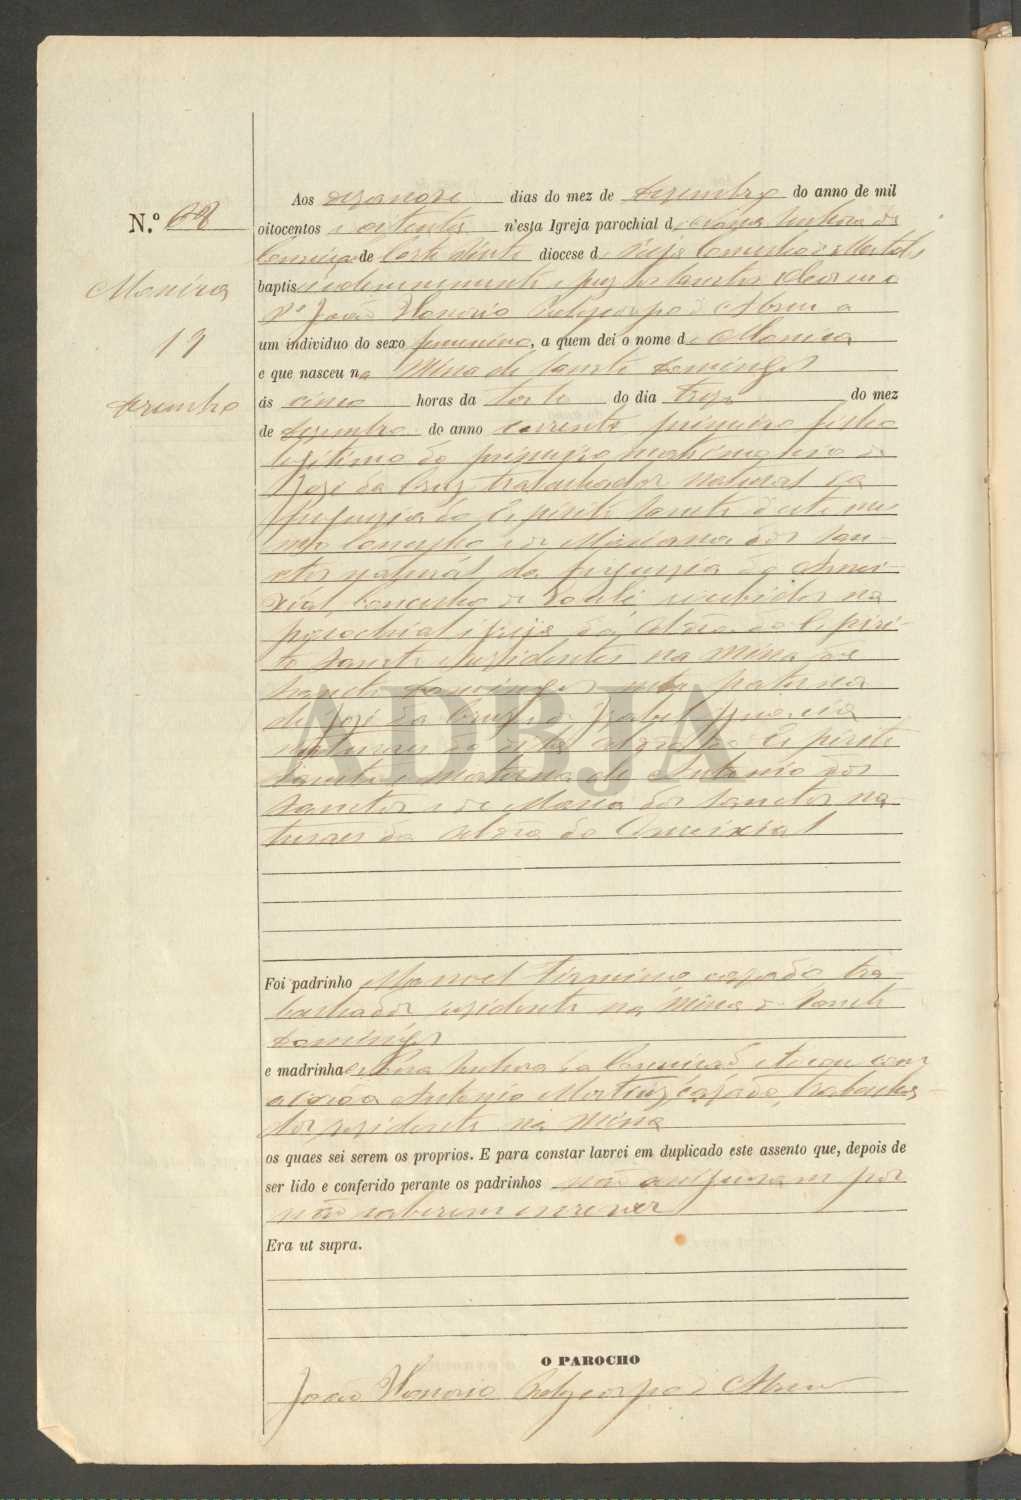 Aos dezanove dias do mez de Dezembro do anno de mil
N.º
oitocentos e oitenta n'esta Igreja parochial d Nossa Senhora da
Conceição de Corte do Pinto diocese d Beja Concelho de Mertola
Maria
baptisei solemnemente e puz os Sanctos Oleos eu o
P.e João Honorio Polycarpo d'Abreu a
19
um individuo do sexo feminino, a quem dei o nome de Maria
e que nasceu na Mina de Sancto Domingos
Dezembro
ás cinco horas da tarde do dia treze do mez
de Dezembro do anno corrente primeiro filho
legitimo do primeiro matrimonio de
José da Cruz trabalhador natural da
freguezia do Espirito Sancto deste mes-
mo Concelho e de Mariana dos San-
ctos natural da freguezia do Amei-
xial Concelho de Loulé recebidos na
parochial igreja da Aldeia do Espiri-
to Sancto e residentes na Mina de
Sancto Domingos neta paterna
de José da Cruz e de Izabel Ignacia
naturaes da dita aldeia do Espirito
Sancto e Materna de Antonio dos
Sanctos e de Maria dos Sanctos na-
turaes da Aldeia do Ameixial
Foi padrinho Manoel Firmino cazado tra
balhador rezidente na Mina de Sancto
Domingos
e madrinha Nossa Senhora da Conceição e tocou com
a corôa Antonio Martins cazado, trabalha-
dor, rezidente na Mina
os quaes sei serem os proprios. E para constar lavrei em duplicado este assento que, depois de
ser lido e conferido perante os padrinhos não assignaram por
não saberem escrever
Era ut supra.
O PAROCHO
João Honorio Polycarpo d'Abreu
ADBJA